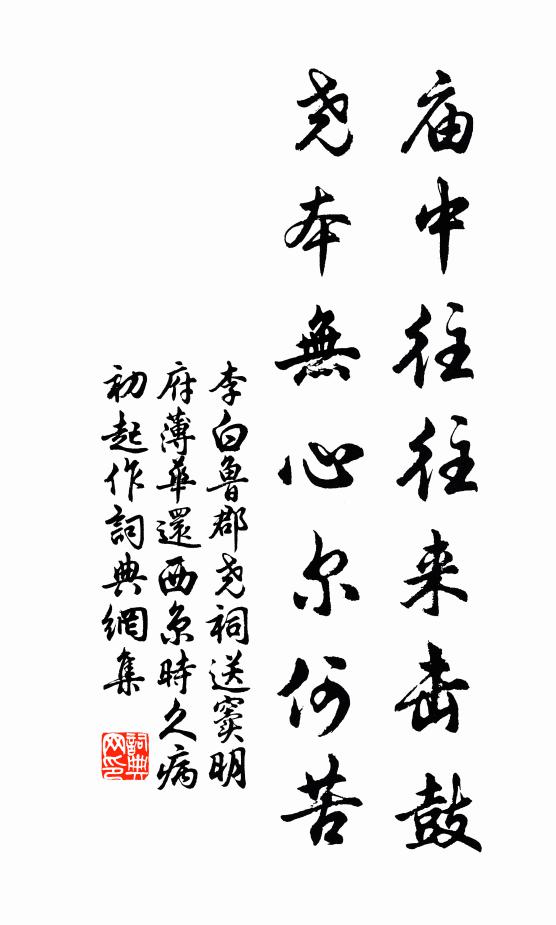 庙中往往来击鼓
尧本無心尔何苦
李白魯郡尧祠送窦明
府薄華還西京時久病
初起作詞典網集
詞典
网印